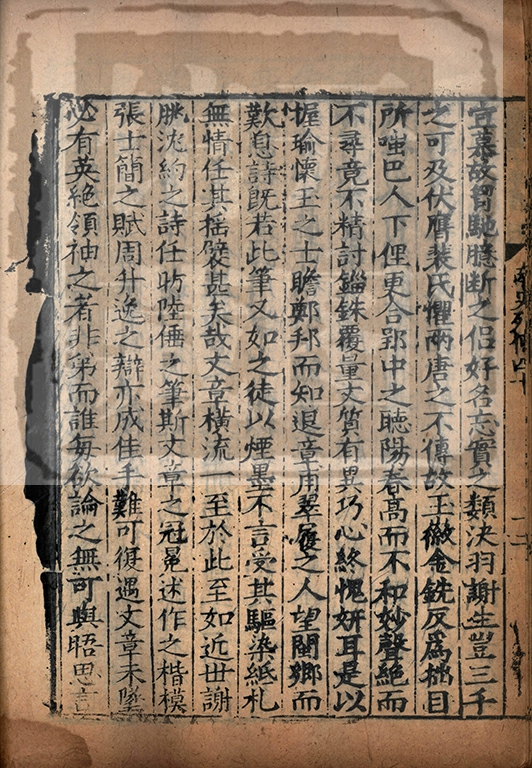 宜慕故胷馳臆斷之侣好名忘實之類決羽謝生豈三千
之可及伏膺裴氏懼兩唐之不傳故玉徽金銑反爲拙目
所嗤巴人下俚更合郢中之聽陽春高而不和妙聲絶而
不尋竟不精討錙銖覆量文質有異巧心終愧妍耳是以
握瑜懷王之士瞻鄭邦而知退章甫翠履之人望閩鄉而
歎息詩旣若此筆又如之徒以煙墨不言受其驅染紙札
無情任其揺襞甚矣哉文章橫流一至於此至如近世謝
朓沈約之詩任昉陸倕之筆斯文章之冠冕述作之楷模
張士簡之賦周升逸之辯亦成佳手難可復遇文章未墜
必有英絶領袖之者非弟而誰每欲論之無可與晤思言